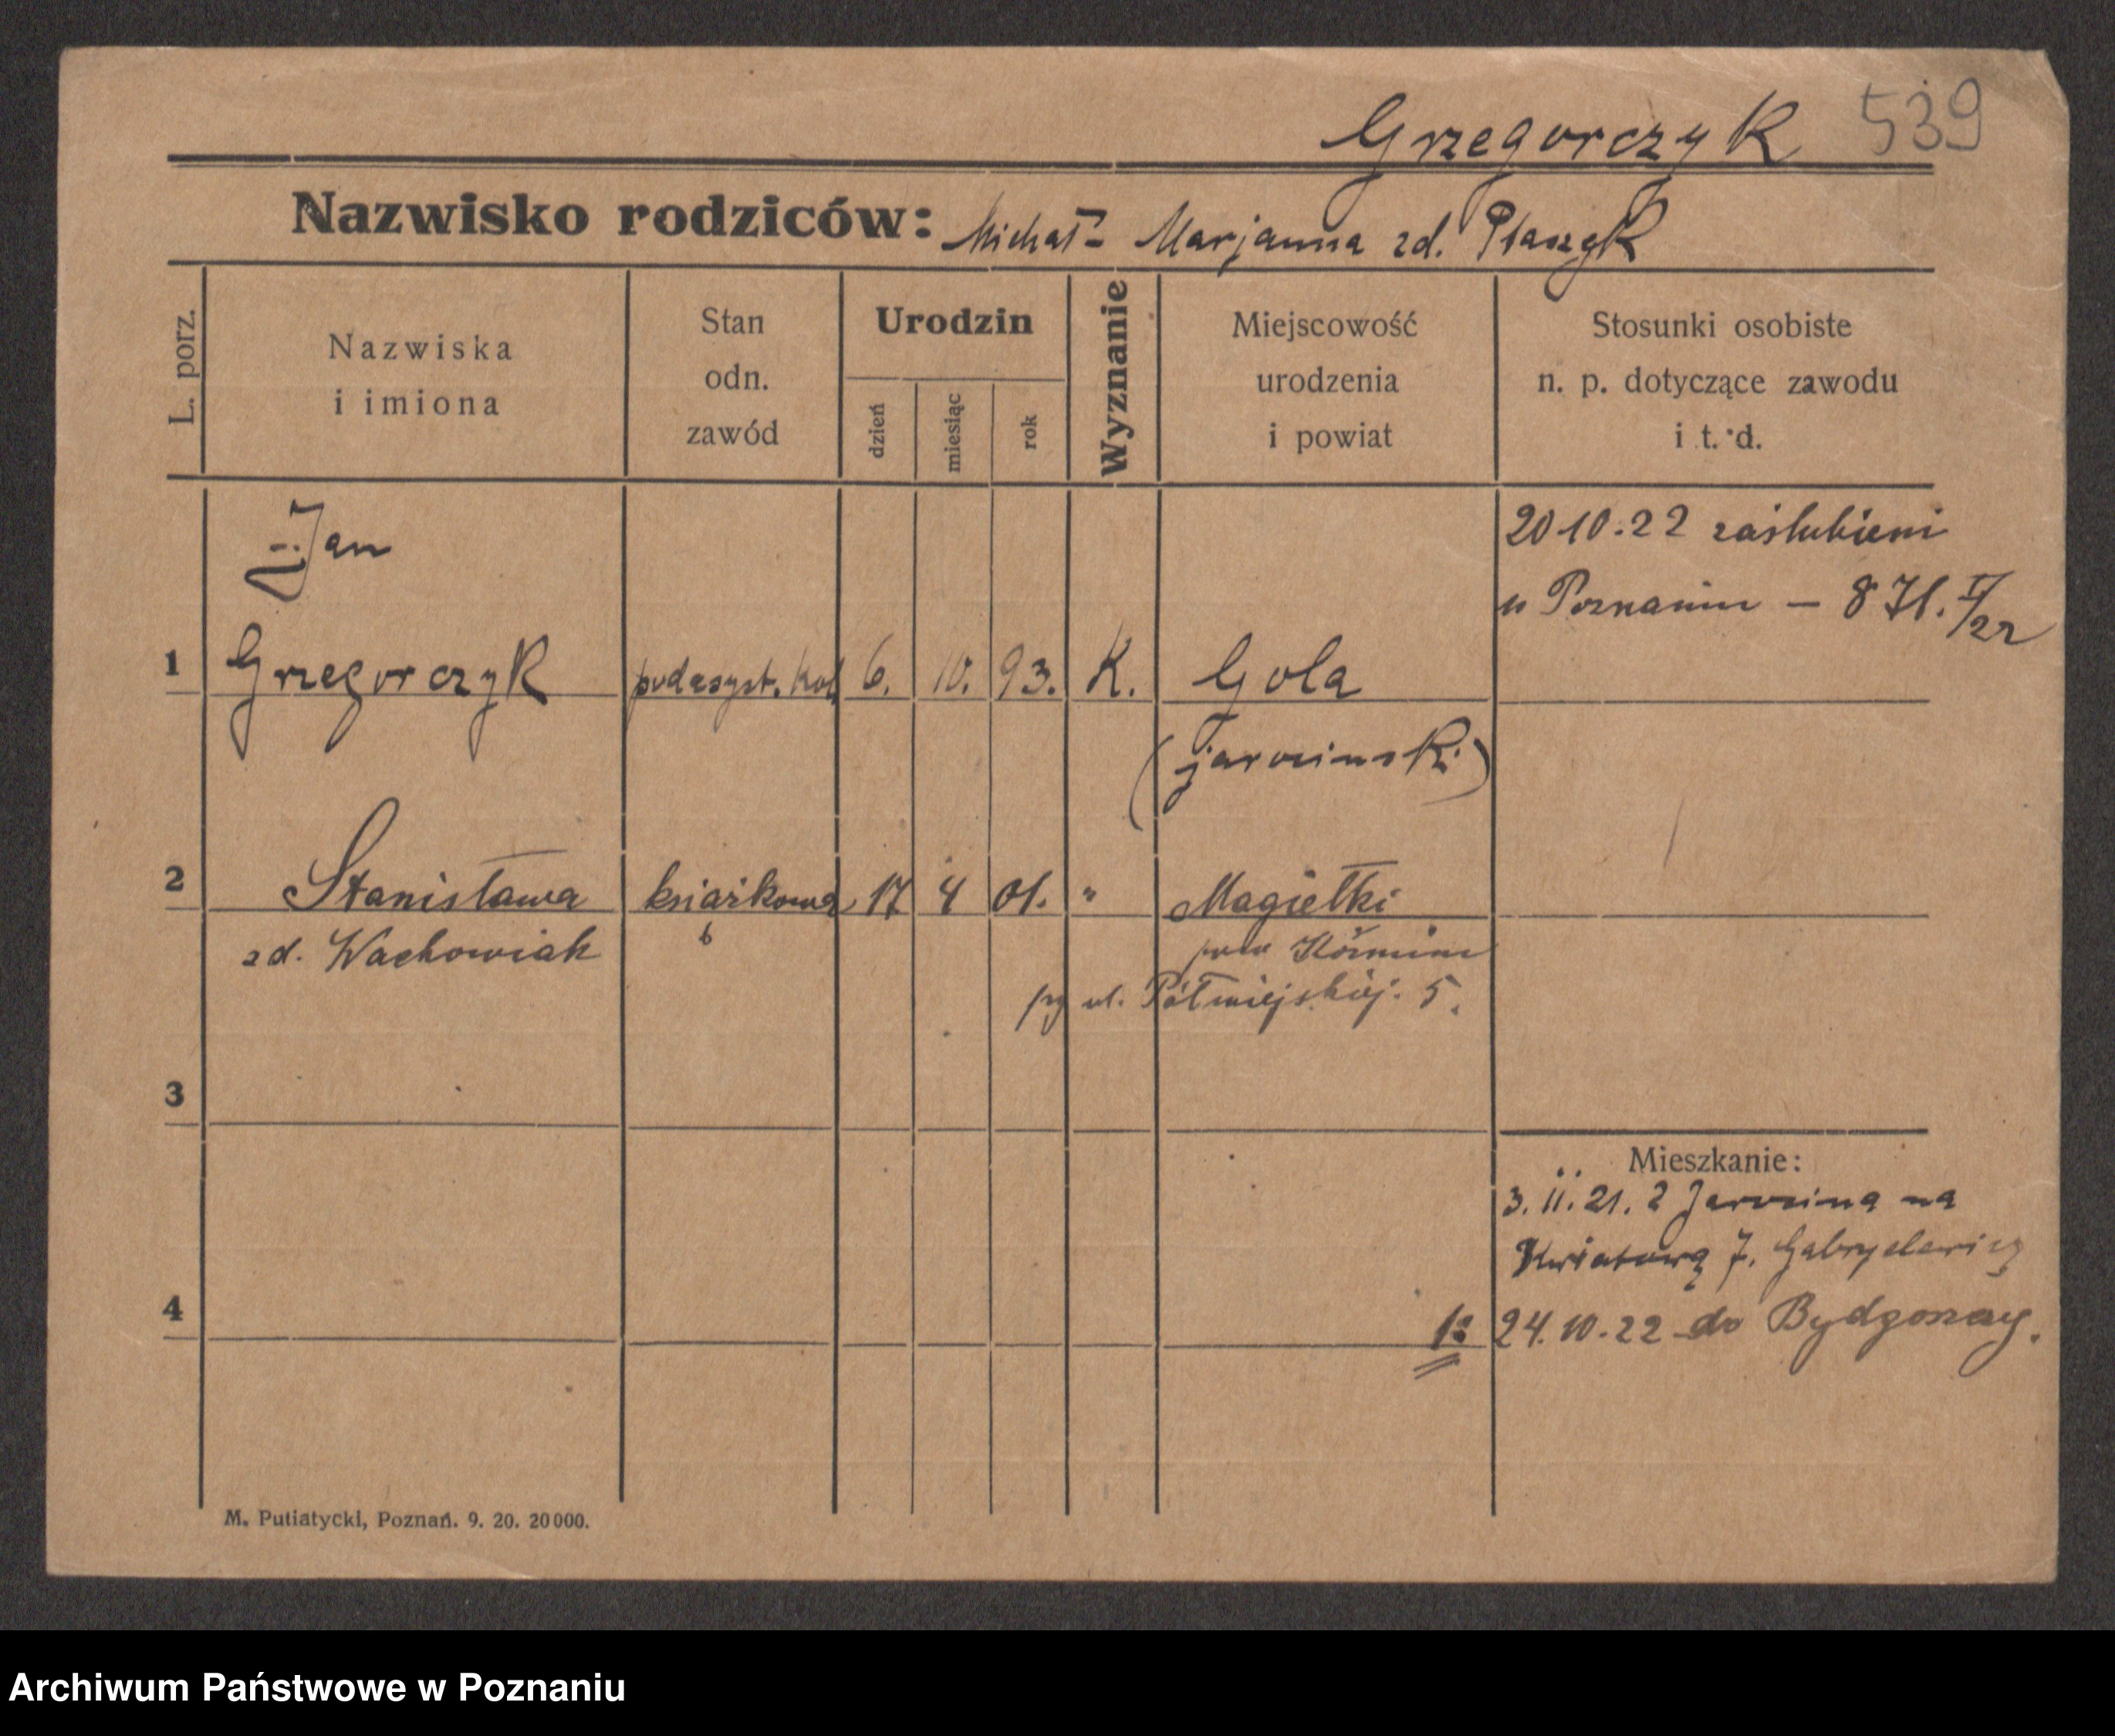 Grzegorczyk 539
Nazwisko rodziców: Michał - Marjanna zd. Ptaszyk
L. porz.
Nazwiska
i imiona
Stan
odn.
zawód
Urodzin
dzień
miesiąc
rok
Wyznanie
Miejscowość
urodzenia
i powiat
Stosunki osobiste
n. p. dotyczące zawodu
i t. d.
Jan
20.10.22 zaślubieni
w Poznaniu - 871. II/22
1 Grzegorczyk podasyst. kol. 6. 10. 93. K. Gola
(jarocinski)
2 Stanisława książkowa 17 4 01. " Magiełki
zd. Wachowiak pow Koźmin
ul. Półwiejskiej. 5.
3
Mieszkanie:
3. 11. 21. z Jarocina na
Kwiatową 7. Gabryelewicz
4 24. 10. 22 do Bydgoszczy.
M. Putiatycki, Poznań. 9. 20. 20000.
Archiwum Państwowe w Poznaniu